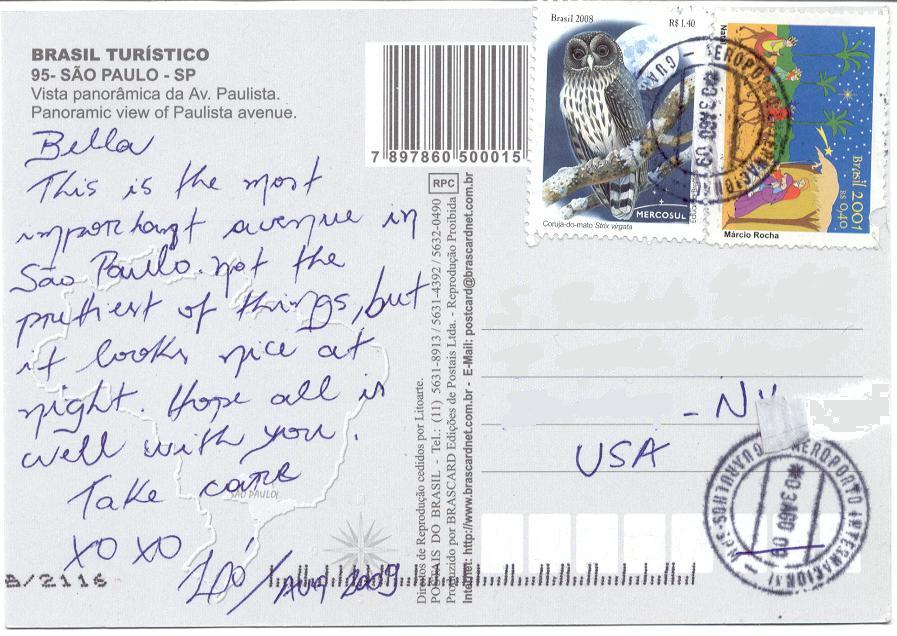 BRASIL TURÍSTICO
95- SÃO PAULO - SP
Vista panorâmica da Av. Paulista.
Panoramic view of Paulista avenue.
Bella
This is the most
important avenue in
São Paulo. not the
prettiest of things, but
it looks nice at
night. Hope all is
well with you.
Take care
XO XO
/ Aug 2009
SÃO PAULO
B/2116
7 897860 500015
RPC
Direitos de Reprodução cedidos por Litoarte.
POSTAIS DO BRASIL - Tel.: (11) 5631-8913 / 5631-4392 / 5632-0490
Produzido por BRASCARD Edições de Postais Ltda. - Reprodução Proibida
Internet: http://www.brascardnet.com.br - E-Mail: postcard@brascardnet.com.br
Brasil 2008
R$ 1,40
MERCOSUL
Coruja-do-mato Strix virgata
Brasil 2001
R$ 0,40
Márcio Rocha
AEROPORTO INTERNACIONAL
03 AGO 09
- NY
USA
AEROPORTO INTERNACIONAL
03 AGO 09